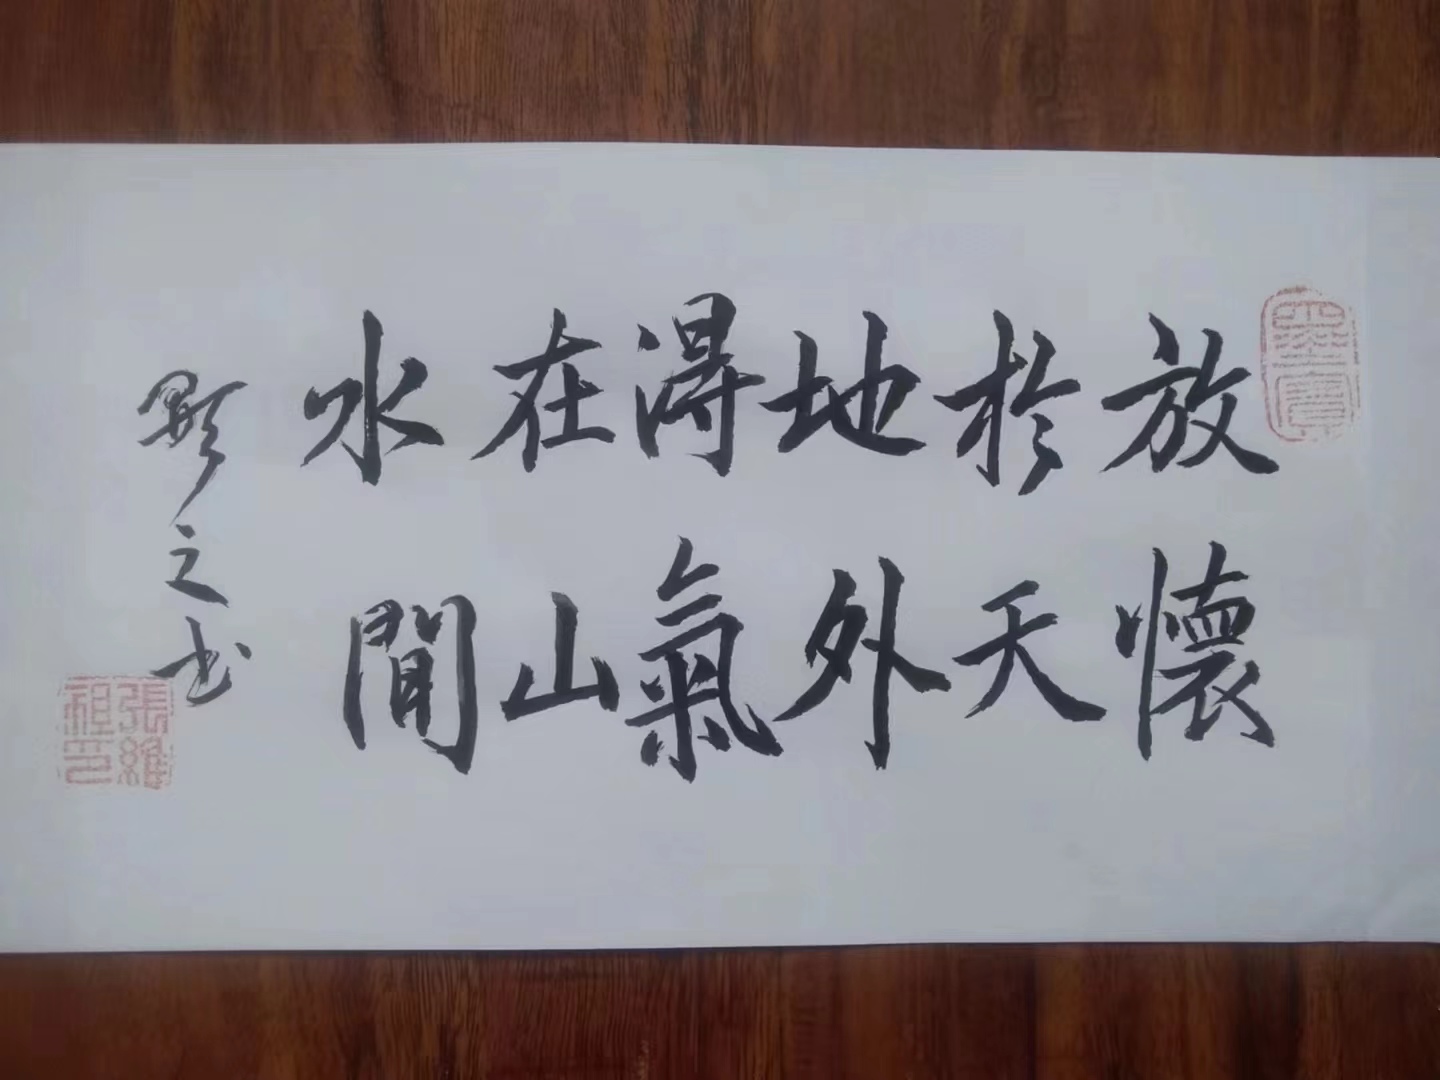 墨寶
放懷
於天
地外
淂氣
在山
水間
之书
張維祖印